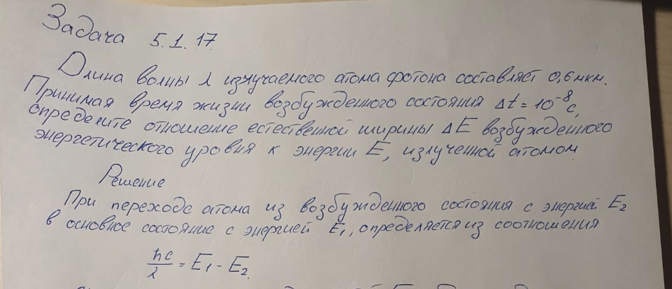 Задача 5.1.17.
Длина волны λ излучаемого атома фотона составляет 0,6мкм.
Принимая время жизни возбужденного состояния Δt = 10⁻⁸с,
определите отношение естественной ширины ΔE возбужденного
энергетического уровня к энергии E, излученной атомом
Решение
При переходе атома из возбужденного состояния с энергией E₂
в основное состояние с энергией E₁, определяется из соотношения
hc/λ = E₁ - E₂.